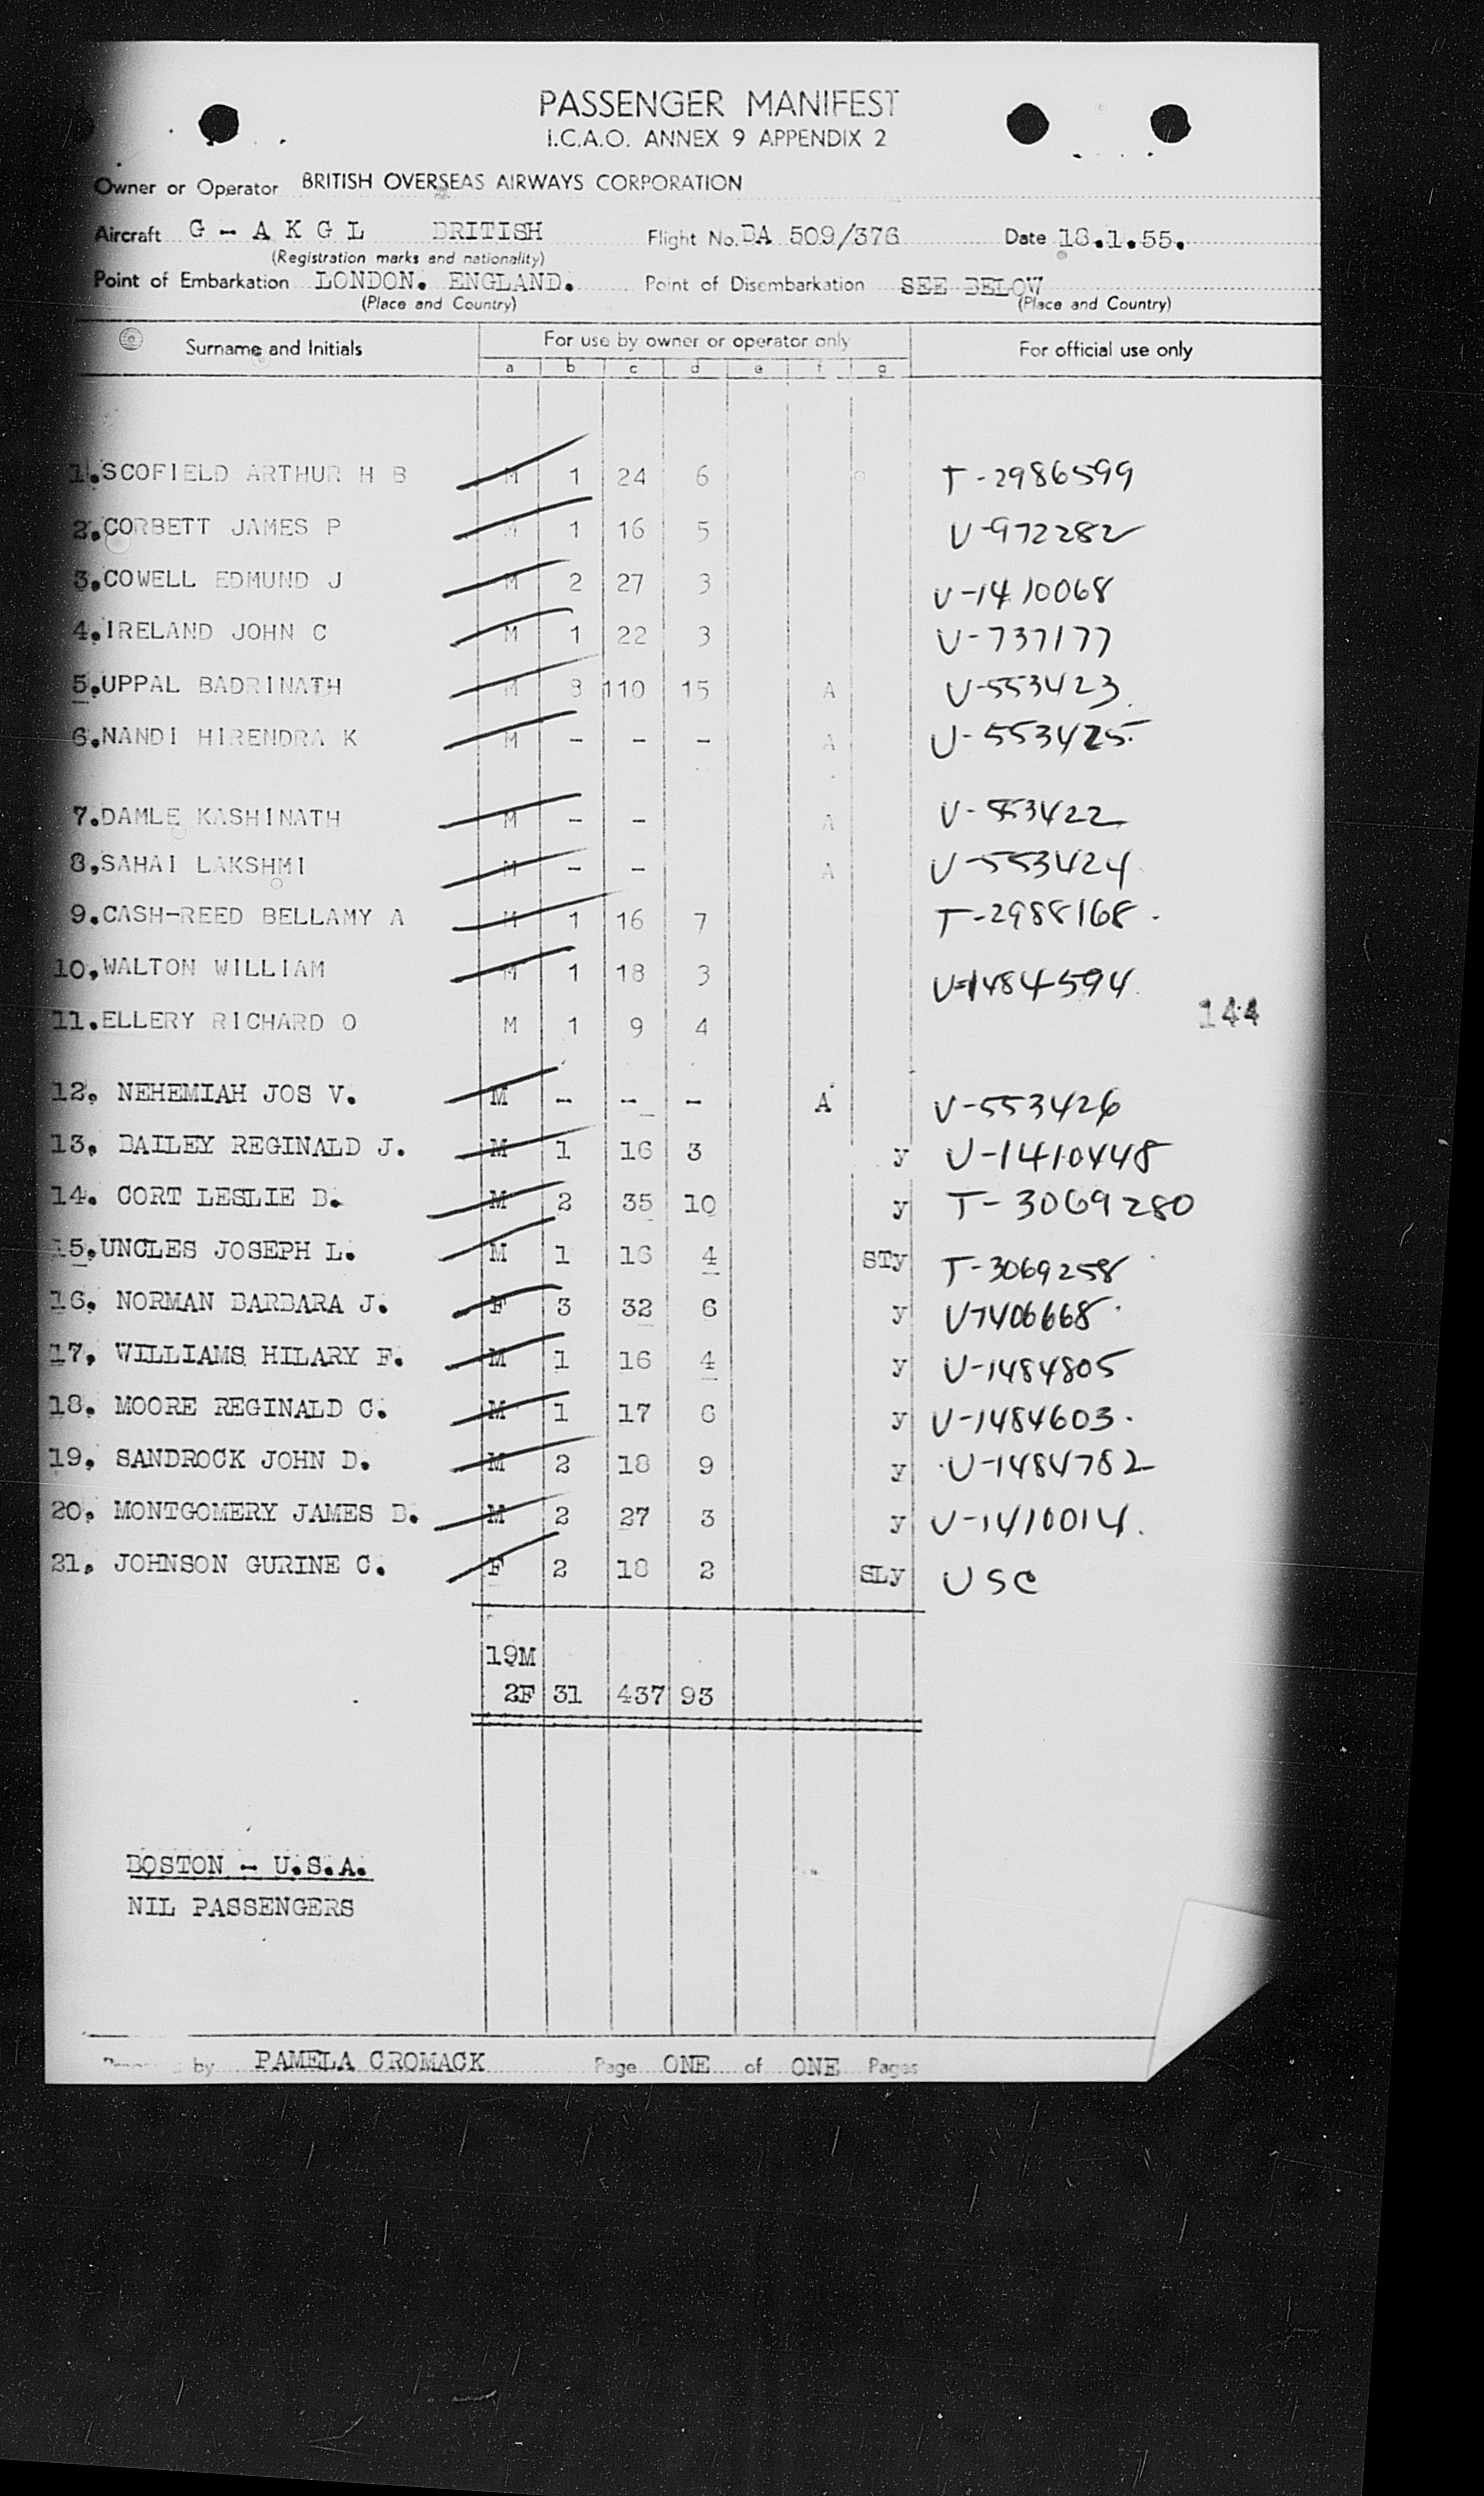 PASSENGER MANIFEST
I.C.A.O. ANNEX 9 APPENDIX 2
Owner or Operator BRITISH OVERSEAS AIRWAYS CORPORATION
Aircraft G - A K G L BRITISH Flight No. BA 509/376 Date 18.1.55.
(Registration marks and nationality)
Point of Embarkation LONDON. ENGLAND. Point of Disembarkation SEE BELOW
(Place and Country) (Place and Country)
Surname and Initials For use by owner or operator only For official use only
a b c d e f g
1.SCOFIELD ARTHUR H B M 1 24 6 T-2986599
2.CORBETT JAMES P M 1 16 5 V-972282
3.COWELL EDMUND J M 2 27 3 V-1410068
4.IRELAND JOHN C M 1 22 3 V-737177
5.UPPAL BADRINATH M 8 110 15 A V-553423
6.NANDI HIRENDRA K M - - - A V-553425
7.DAMLE KASHINATH M - - A V-553422
8,SAHAI LAKSHMI M - - A V-553424
9.CASH-REED BELLAMY A M 1 16 7 T-2988168
10,WALTON WILLIAM M 1 18 3 V-1484594
11.ELLERY RICHARD O M 1 9 4
144
12. NEHEMIAH JOS V. M - - - A V-553426
13. BAILEY REGINALD J. M 1 16 3 y V-1410448
14. CORT LESLIE B. M 2 35 10 y T-3069280
15.UNCLES JOSEPH L. M 1 16 4 STy T-3069258
16. NORMAN BARBARA J. F 3 32 6 y V-1406668
17. WILLIAMS HILARY F. M 1 16 4 y V-1484805
18. MOORE REGINALD C. M 1 17 6 y V-1484603
19. SANDROCK JOHN D. M 2 18 9 y V-1484782
20. MONTGOMERY JAMES B. M 2 27 3 y V-1410014
21. JOHNSON GURINE C. F 2 18 2 SLy USC
19M
2F 31 437 93
BOSTON - U.S.A.
NIL PASSENGERS
by PAMELA CROMACK Page ONE of ONE Pages